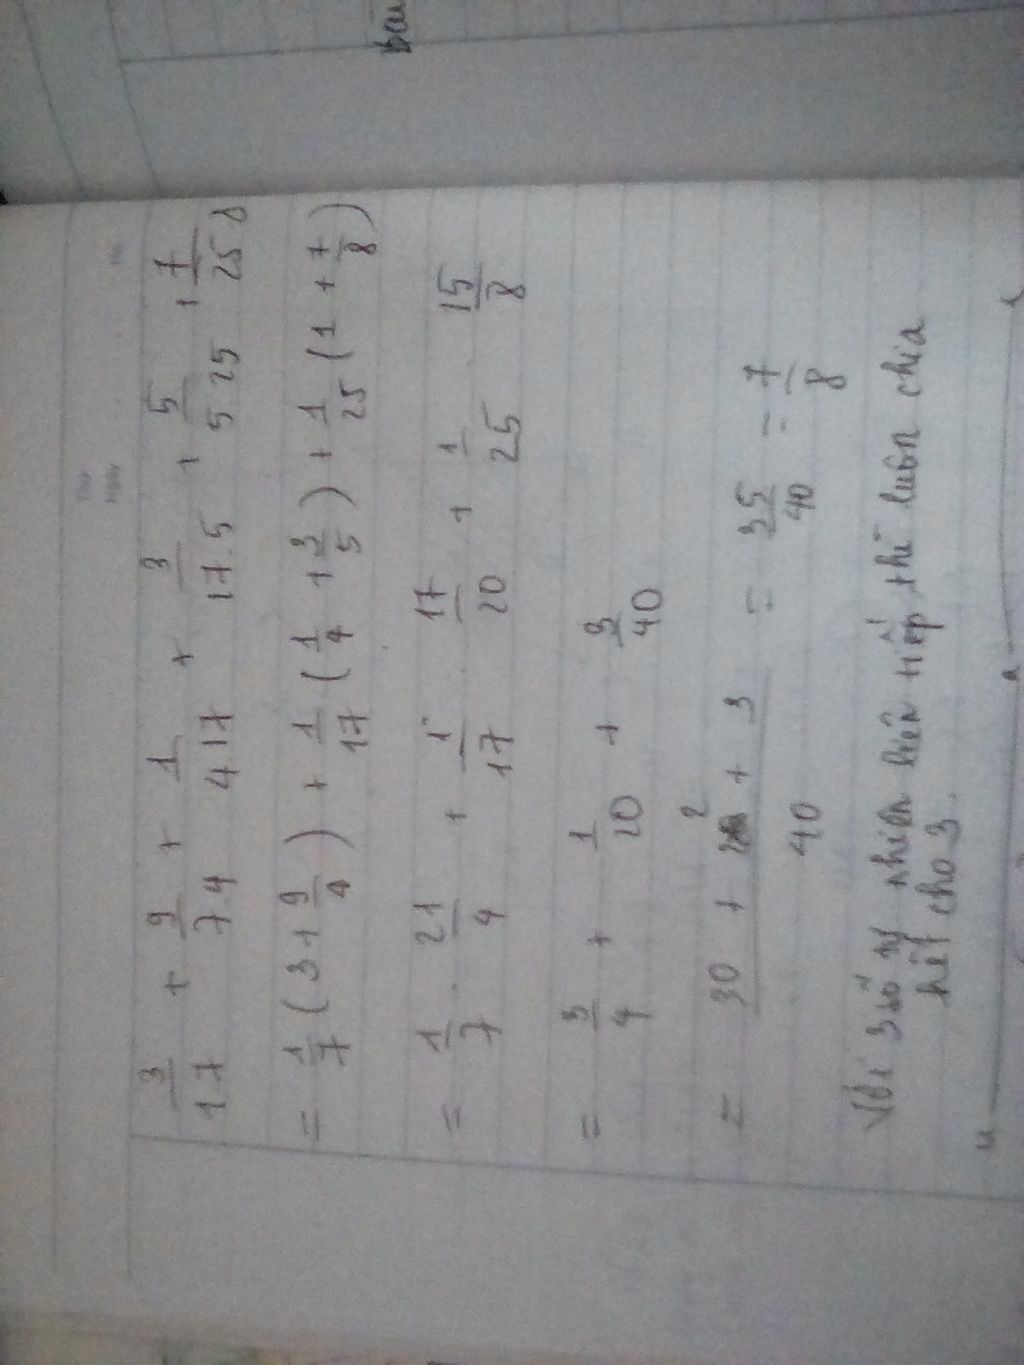 bài
3/1.7 + 9/7.4 + 1/4.17 + 3/17.5 + 5/5.25 + 7/25.8
= 1/7 (3 + 9/4) + 1/17 (1/4 + 3/5) + 1/25 (1 + 7/8)
= 1/7 . 21/4 + 1/17 . 17/20 + 1/25 . 15/8
= 3/4 + 1/20 + 3/40
= 30 + 2 + 3 / 40 = 35/40 = 7/8
Với 3 số tự nhiên liên tiếp thì luôn chia
hết cho 3.